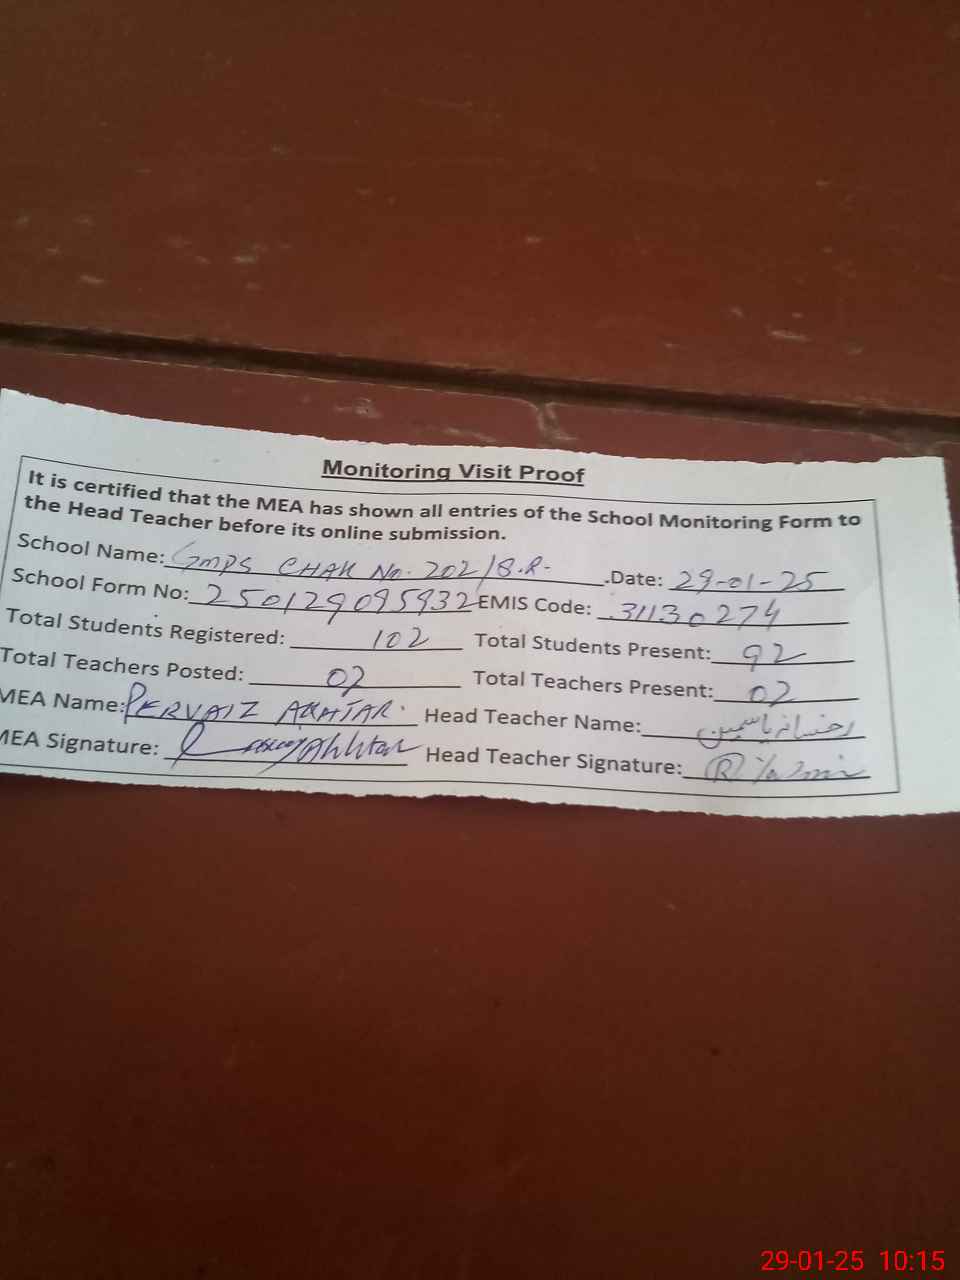 Monitoring Visit Proof
It is certified that the MEA has shown all entries of the School Monitoring Form to
the Head Teacher before its online submission.
School Name: GMPS CHAK No. 202/8.R- .Date: 29-01-25
School Form No: 250129095932 EMIS Code: 31130274
Total Students Registered: 102 Total Students Present: 92
Total Teachers Posted: 02 Total Teachers Present: 02
MEA Name: PERVAIZ AKHTAR. Head Teacher Name: رخسانہ یاسمین
MEA Signature: Akhtar Head Teacher Signature: R. Yasmin
29-01-25 10:15